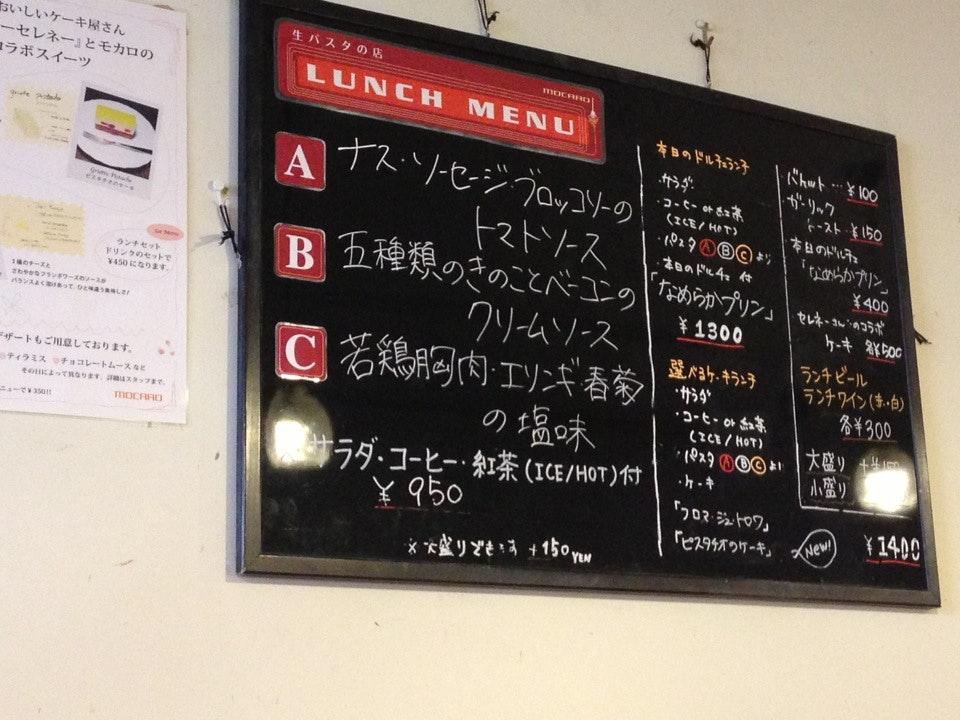 おいしいケーキ屋さん
ーセレネー』とモカロの
コラボスイーツ
griotte Pistache
ピスタチオのケーキ
ランチセット
ドリンクのセットで
¥450になります。
1種のチーズと
さわやかなフランボワーズのソースが
バランスよく溶けあって、ひと味違う美味しさ!
デザートもご用意しております。
ティラミス チョコレートムース など
その日によって異なります。詳細はスタッフまで。
メニューで¥350!!
MOCARO
生パスタの店
LUNCH MENU
MOCARO
A ナス・ソーセージ・ブロッコリーの
トマトソース
B 五種類のきのことベーコンの
クリームソース
C 若鶏胸肉・エリンギ・春菊
の塩味
サラダ・コーヒー・紅茶(ICE/HOT)付
¥950
※大盛りできます +150YEN
本日のドルチェランチ
・サラダ
・コーヒー or 紅茶
(ICE/HOT)
・パスタ A B C より
・本日のドルチェ付
「なめらかプリン」
¥1300
選べるケーキランチ
・サラダ
・コーヒー or 紅茶
(ICE/HOT)
・パスタ A B C より
・ケーキ
「フロマージュ・トロワ」
「ピスタチオのケーキ」
New!
¥1400
バケット … ¥100
ガーリック
トースト … ¥150
本日のドルチェ
「なめらかプリン」
¥400
セレネーさんのコラボ
ケーキ 各¥500
ランチビール
ランチワイン(赤・白)
各¥300
大盛り +¥150
小盛り